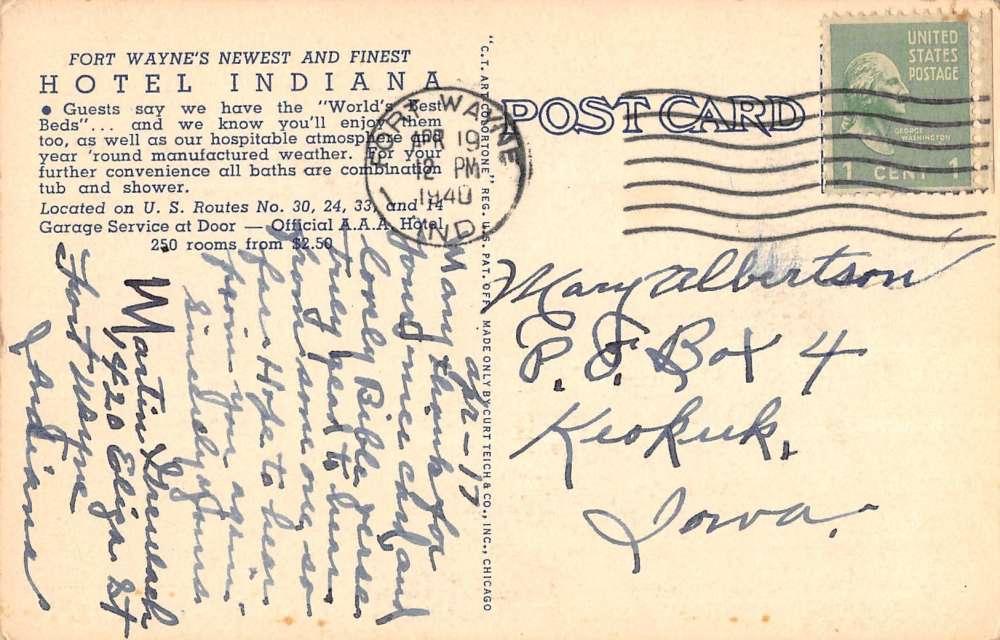 FORT WAYNE'S NEWEST AND FINEST
HOTEL INDIANA
• Guests say we have the "World's Best
Beds"... and we know you'll enjoy them
too, as well as our hospitable atmosphere and
year 'round manufactured weather. For your
further convenience all baths are combination
tub and shower.
Located on U. S. Routes No. 30, 24, 33, and 14
Garage Service at Door — Official A.A.A. Hotel
250 rooms from $2.50
"C.T. ART-COLORTONE" REG. U.S. PAT. OFF. MADE ONLY BY CURT TEICH & CO., INC., CHICAGO
POST CARD
FORT WAYNE
APR 19
12 PM
1940
IND.
UNITED
STATES
POSTAGE
GEORGE
WASHINGTON
1 CENT 1
Apr-17
Mary thanks for
your nice chof and
lovely Bible verse
Truly great to have
them among so
far Hope to hear
from you again.
Sincerely yours
Martin
1,420 Eliza St
Fort Wayne
Indiana
Mary Albertson
P. O. Box 4
Keokuk,
Iowa.